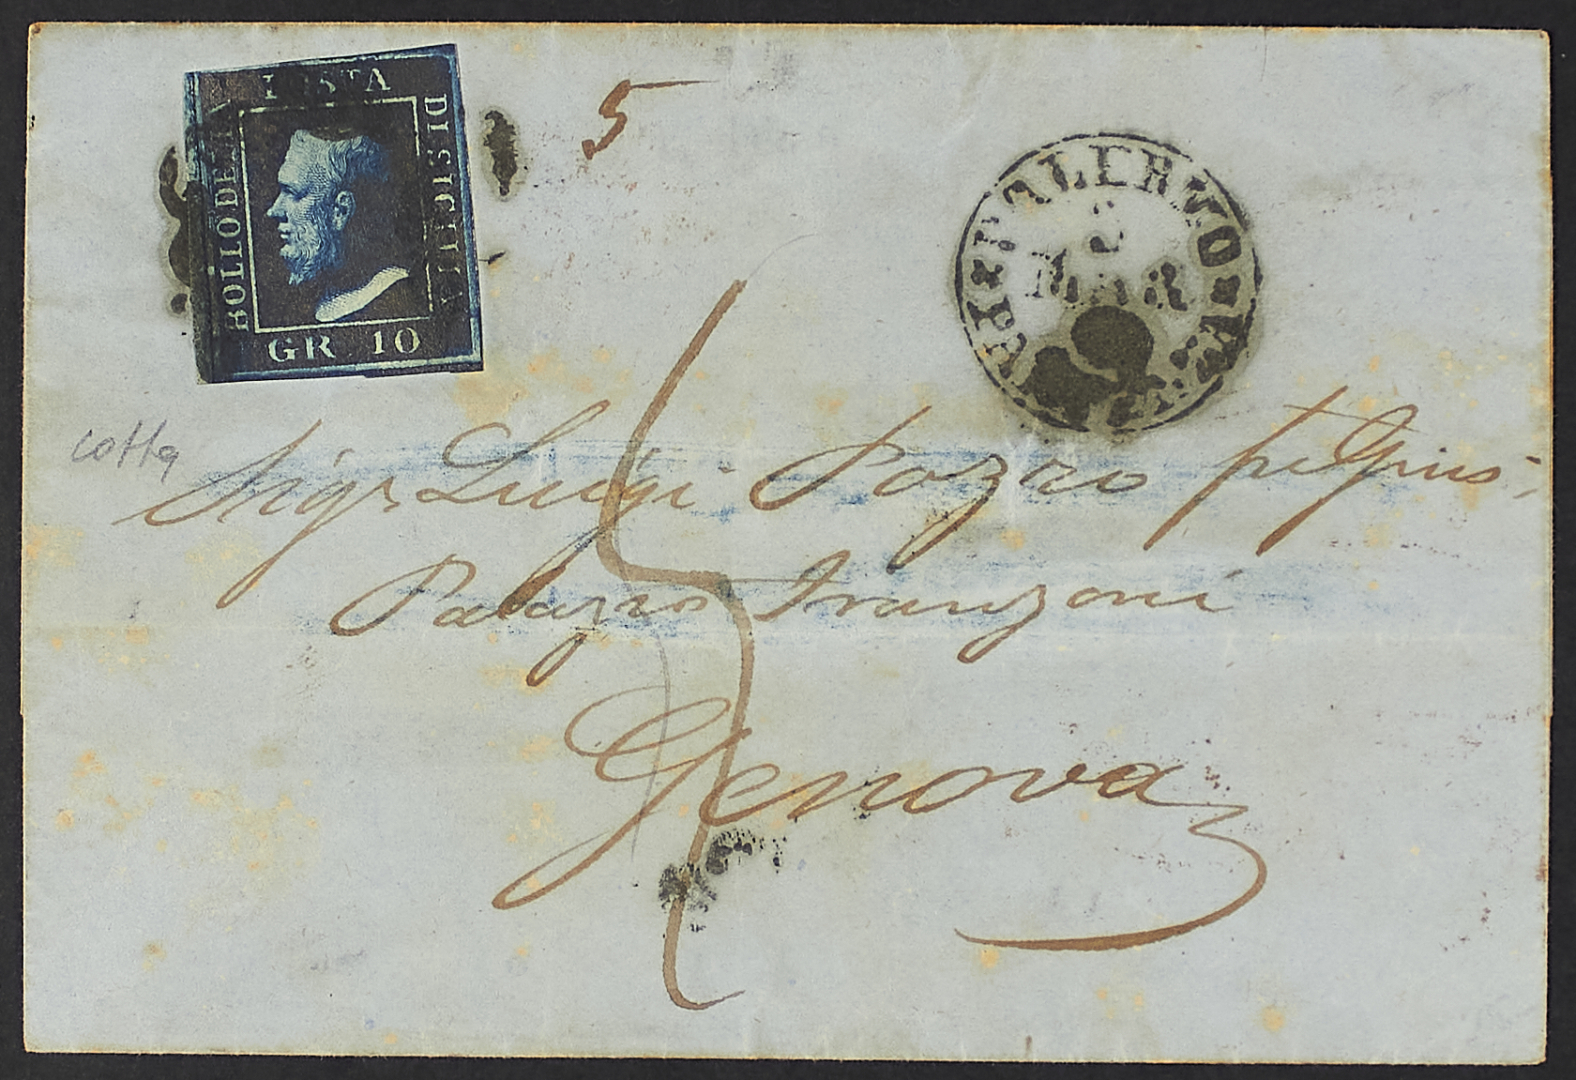 BOLLO DELLA POSTA DI SICILIA
GR 10
5
PALERMO
MAR
cotta
Sigr Luigi Pozzo fu Gius:
Palazzo Franzoni
Genova